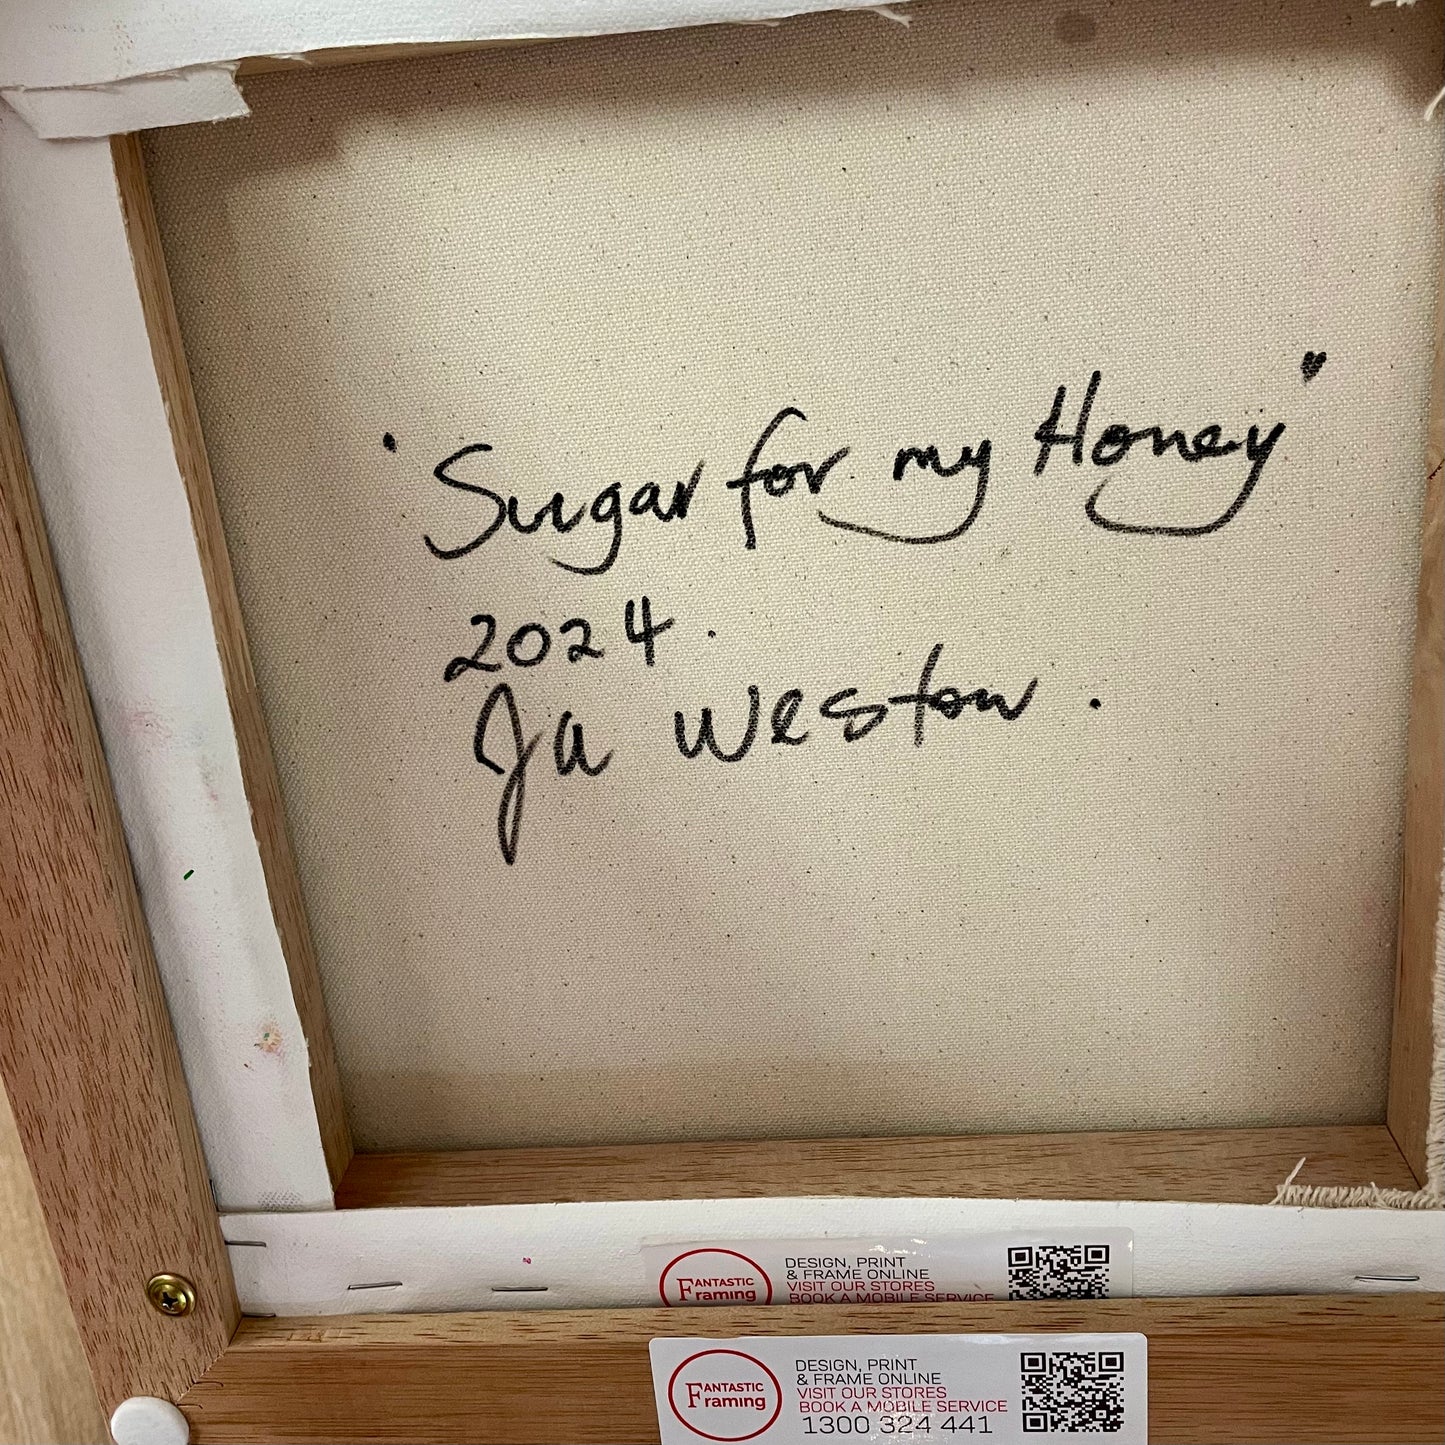 "Sugar for my Honey"
2024.
Ja Weston.
FANTASTIC
Framing
DESIGN, PRINT
& FRAME ONLINE
VISIT OUR STORES
BOOK A MOBILE SERVICE
FANTASTIC
Framing
DESIGN, PRINT
& FRAME ONLINE
VISIT OUR STORES
BOOK A MOBILE SERVICE
1300 324 441